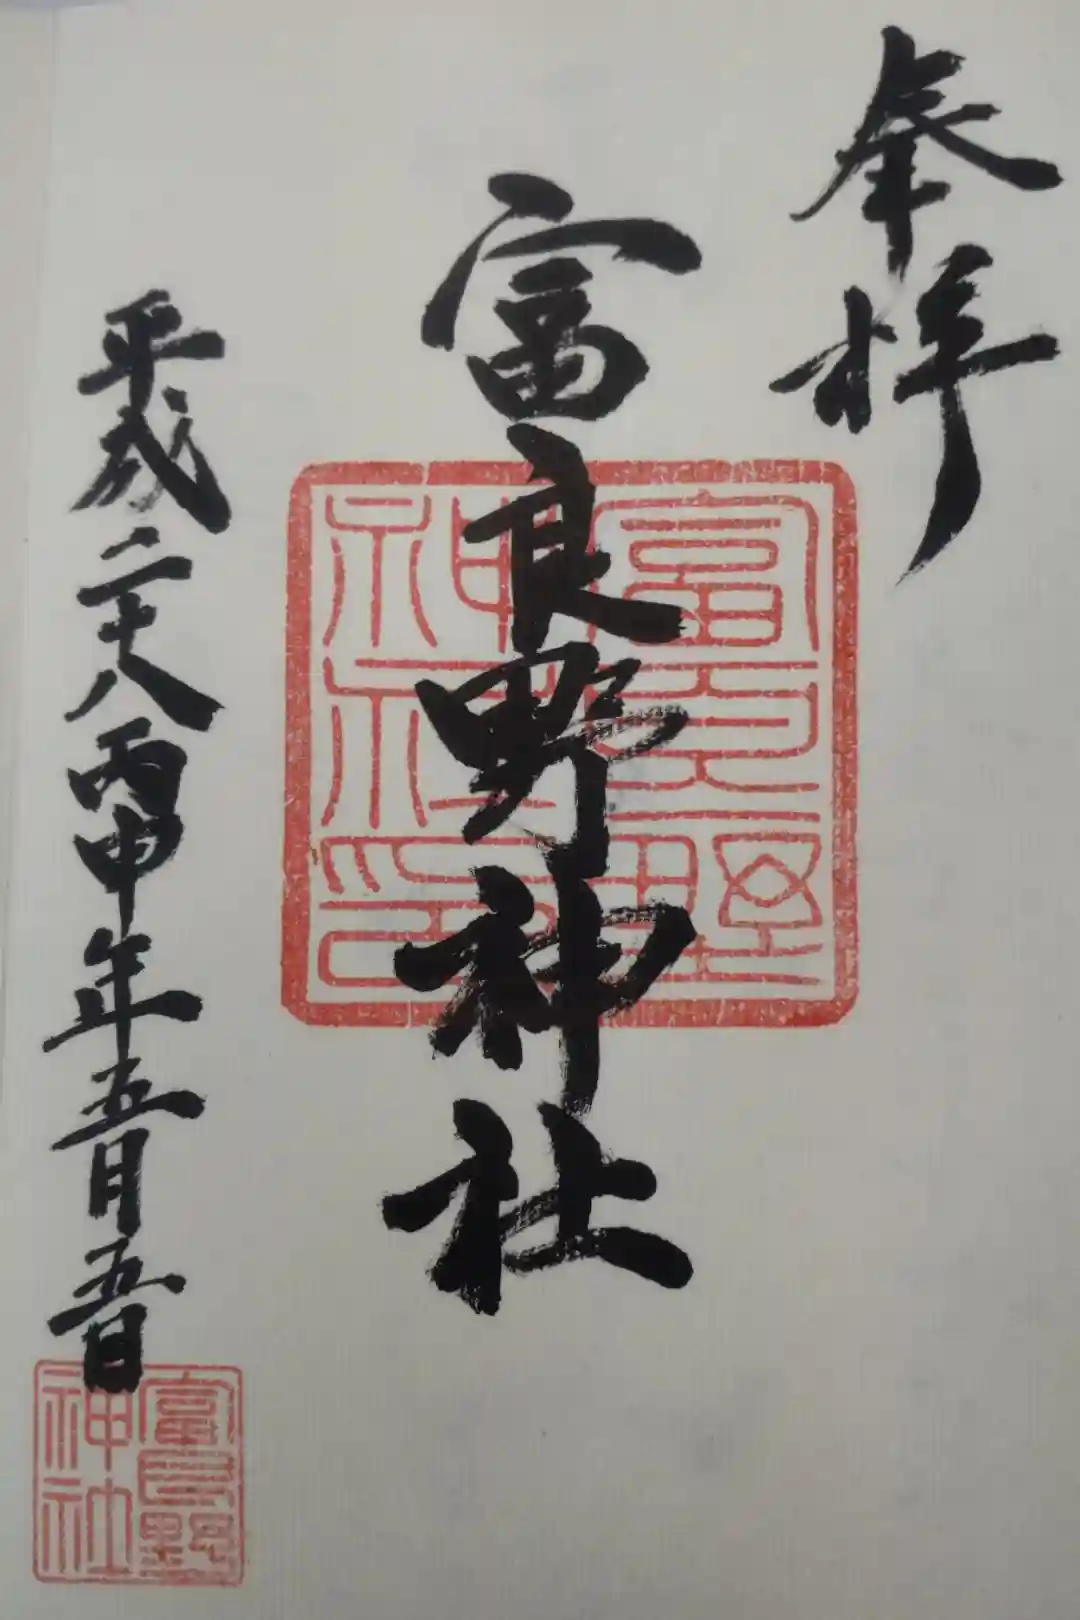 奉拝
富良野神社
平成二十八丙申年五月五日
富良野神社印
富良野神社